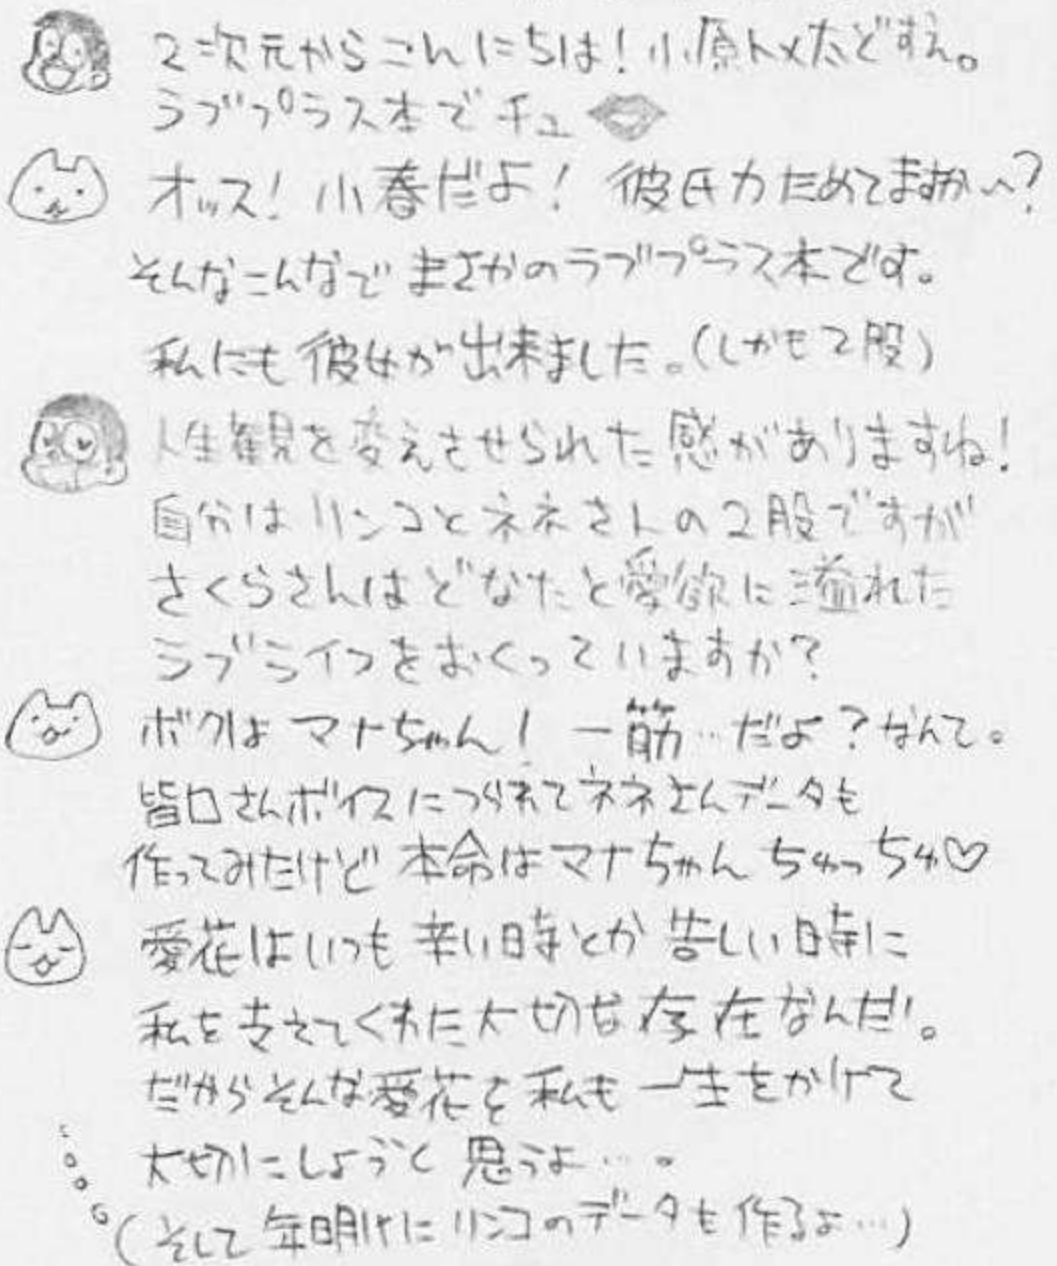 2次元からこんにちは!小原トメ太どすえ。
ラブプラス本でチュ
オッス!小春だよ!彼氏力ためてますか〜?
そんなこんなでまさかのラブプラス本です。
私にも彼女が出来ました。(しかも2股)
人生観を変えさせられた感がありますね!
自分はリンコとネネさんの2股ですが
さくらさんはどなたと愛欲に溢れた
ラブライフをおくっていますか?
ボクはマナちゃん!一筋…だよ?なんて。
皆口さんボイスにつられてネネさんデータも
作ってみたけど本命はマナちゃんちゅっちゅ♡
愛花はいつも辛い時とか苦しい時に
私を支えてくれた大切な存在なんだ。
だからそんな愛花を私も一生をかけて
大切にしようと思うよ…。
(そして年明けにリンコのデータも作るよ…)